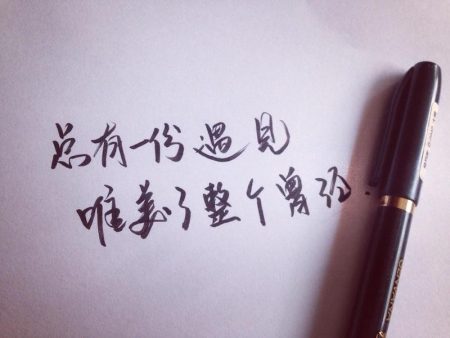 总有一份遇见
唯美了整个曾经！